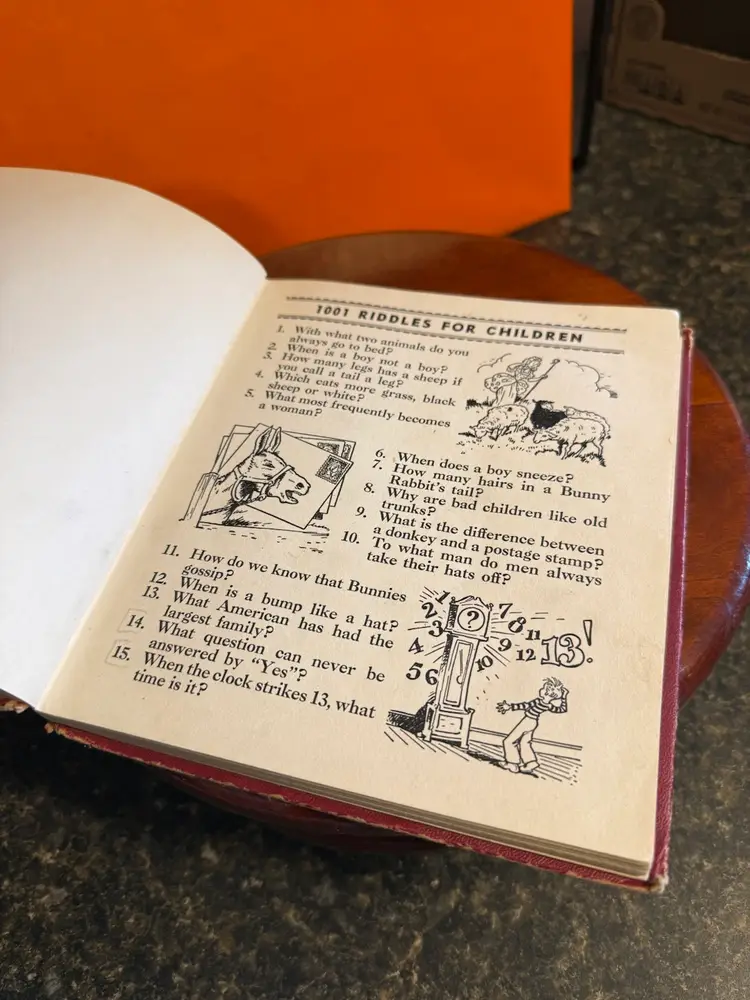 1001 RIDDLES FOR CHILDREN
1. With what two animals do you
always go to bed?
2. When is a boy not a boy?
3. How many legs has a sheep if
you call a tail a leg?
4. Which eats more grass, black
sheep or white?
5. What most frequently becomes
a woman?
6. When does a boy sneeze?
7. How many hairs in a Bunny
Rabbit's tail?
8. Why are bad children like old
trunks?
9. What is the difference between
a donkey and a postage stamp?
10. To what man do men always
take their hats off?
11. How do we know that Bunnies
gossip?
12. When is a bump like a hat?
13. What American has had the
largest family?
14. What question can never be
answered by "Yes"?
15. When the clock strikes 13, what
time is it?
1
2
3
4
5
6
?
7
8
9
10
11
12
13!